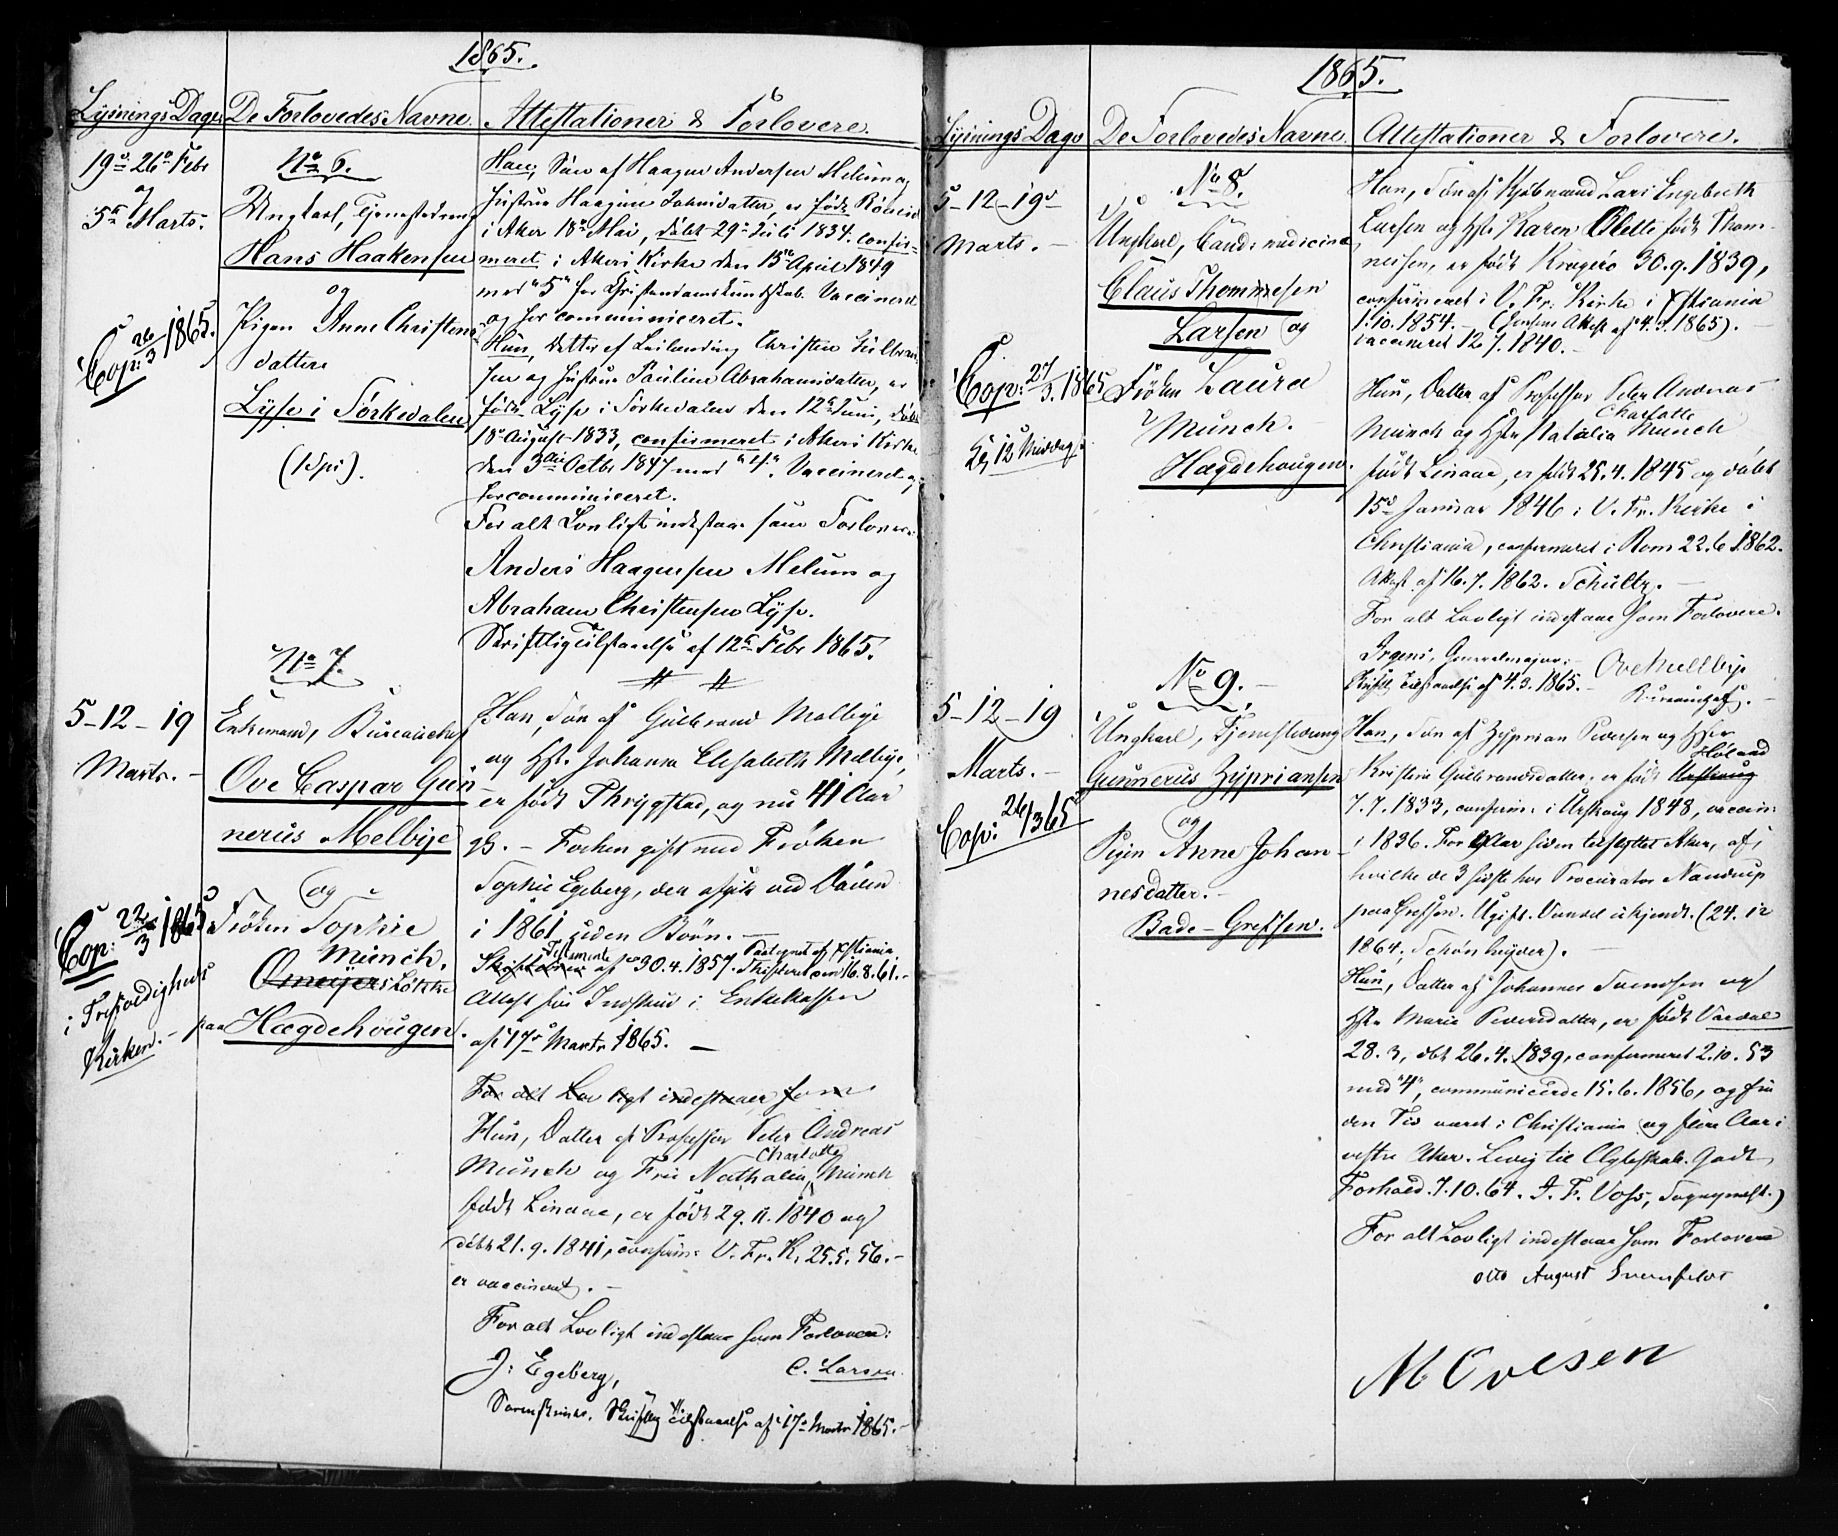 1865.
Lysnings Dage. De Forlovedes Navne. Attestationer & Forlovere.
19de 26de Febr
og
5te Marts.
No 6.
Ungkarl, Tjenestedreng
Hans Haakensen
og
Pigen Anne Christens
datter
Lyse i Sørkedalen
(1 Spd).
Cop: 26/3 1865.
Han, Søn af Haagen Andersen Melum og
Hustru Haagine Jahnsdatter, er født
i Aker 18de Mai, døbt 29de Juli 1834. confir-
meret i Akers Kirke den 15de April 1849
med "5" for Christendomskundskab. Vaccineret
og har communiceret.
Hun, Datter af Leilending Christen Gulbran-
sen og Hustru Pauline Abrahamsdatter, er
født Lyse i Sørkedalen den 12te Juni, døbt
18de August 1833, confirmeret i Akers Kirke
den 3die Octbr 1847 med Vaccineret og
har communiceret.
For alt Lovligt indestaae som Forlovere:
Anders Haagensen Melum og
Abraham Christensen Lyse.
Skriftlig Tilstaaelse af 12te Febr 1865.
No 7.
5-12-19
Marts.-
Enkemand, Bureauchef
Ove Caspar Gun-
nerus Melbye
og
Frøken Sophie
Munch.
Omeyers Løkke
paa Hægdehougen.
Cop: 22/3 1865
i Trefoldigheds
Kirken.-
Han, Søn af Gulbrand Melbye
og Hst. Johanna Elisabeth Melbye,
er født Thrygstad, og nu 41 Aar
gl. - Forhen gift med Frøken
Sophie Egeberg, der afgik ved Døden
i 1861 uden Børn. -
Testamente af 30.4.1857. Paategnet af Xstiania
Skifteret den 16.8.61.-
Attest fra Indskud i Enkekassen
af 17de Marts 1865. -
For alt Lovligt indestaaer som
Hun, Datter af Professor Peter Andreas
Munch og Fru Nathalia Charlotte Munch
født Linaae, er født 29.11.1840 og
døbt 21.9.1841, confirm: V. Fr. K. 25.5.56.-
er vaccineret. -
For alt Lovligt indestaae som Forlovere:
J: Egeberg, C. Larsen
Sorenskriver. Skriftlig Tilstaaelse af 17de Marts 1865.-
1865.
Lysnings Dage De Forlovedes Navne. Attestationer & Forlovere.
5-12-19de
Marts. -
No 8.
Ungkarl, Cand: medicinæ
Claus Thommesen
Larsen og
Frøken Laura
Munch.
Hægdehougen.
Cop: 27/3. 1865
Kl. 12 Middag.
Han, Søn af Kjøbmand Lars Engebreth
Larsen og Hst. Karen Olette født Thom-
mesen, er født Kragerø 30.9.1839,
confirmeret i V. Fr. Kirke i Xstiania
1.10.1854.- (Jensens Attest af 4.3.1865).-
vaccineret 12.7.1840.-
Hun, Datter af Professor Peter Andreas
Munch og Hst. Natalia Charlotte Munch
født Linaae, er født 25.4.1845 og døbt
15de Januar 1846 i V. Fr. Kirke i
Christiania, confirmeret i Rom 22.6.1862.
Attest af 16.7.1862. Schultz. -
For alt Lovligt indestaae som Forlovere.
Irgens, Generalmajor: Ove Mellbye
Skriftl. Tilstaaelse af 4.3.1865.- Bureauchef. -
No 9. -
5-12-19
Marts. -
Ungkarl, Tjenestedreng
Gunnerus Zypriansen
og
Pigen Anne Johan-
nesdatter. -
Bade - Grefsen.
Cop: 26/3 65
Han, Søn af Zyprian Pedersen og Hstr
Kristine Gulbrandsdatter, er født Urskoug Høland
7.7.1833, confirm: i Urskoug 1848, vaccin:
i 1836. For Aar siden tilflyttet Aker, af
hvilke de 3 sidste hos Procurator Nandrup
paa Grefsen. Ugift. Vandel ukjendt. (24.12
1864. Schönheyder). -
Hun, Datter af Johannes Svendsen og
Hst. Marie Pedersdatter, er født Vardal
28.3, dbt 26.4.1839, confirmeret 2.10.53
med "4", communicerede 15.6.1856, og fra
den Tid været i Christiania og flere Aar i
vestre Aker. Ledig til Ægteskab. Godt
Forhold. 7.10.64. J. F. Voss, Sognepræst.)
For alt Lovligt indestaae som Forlovere
Otto August Evensen
M Ovesen